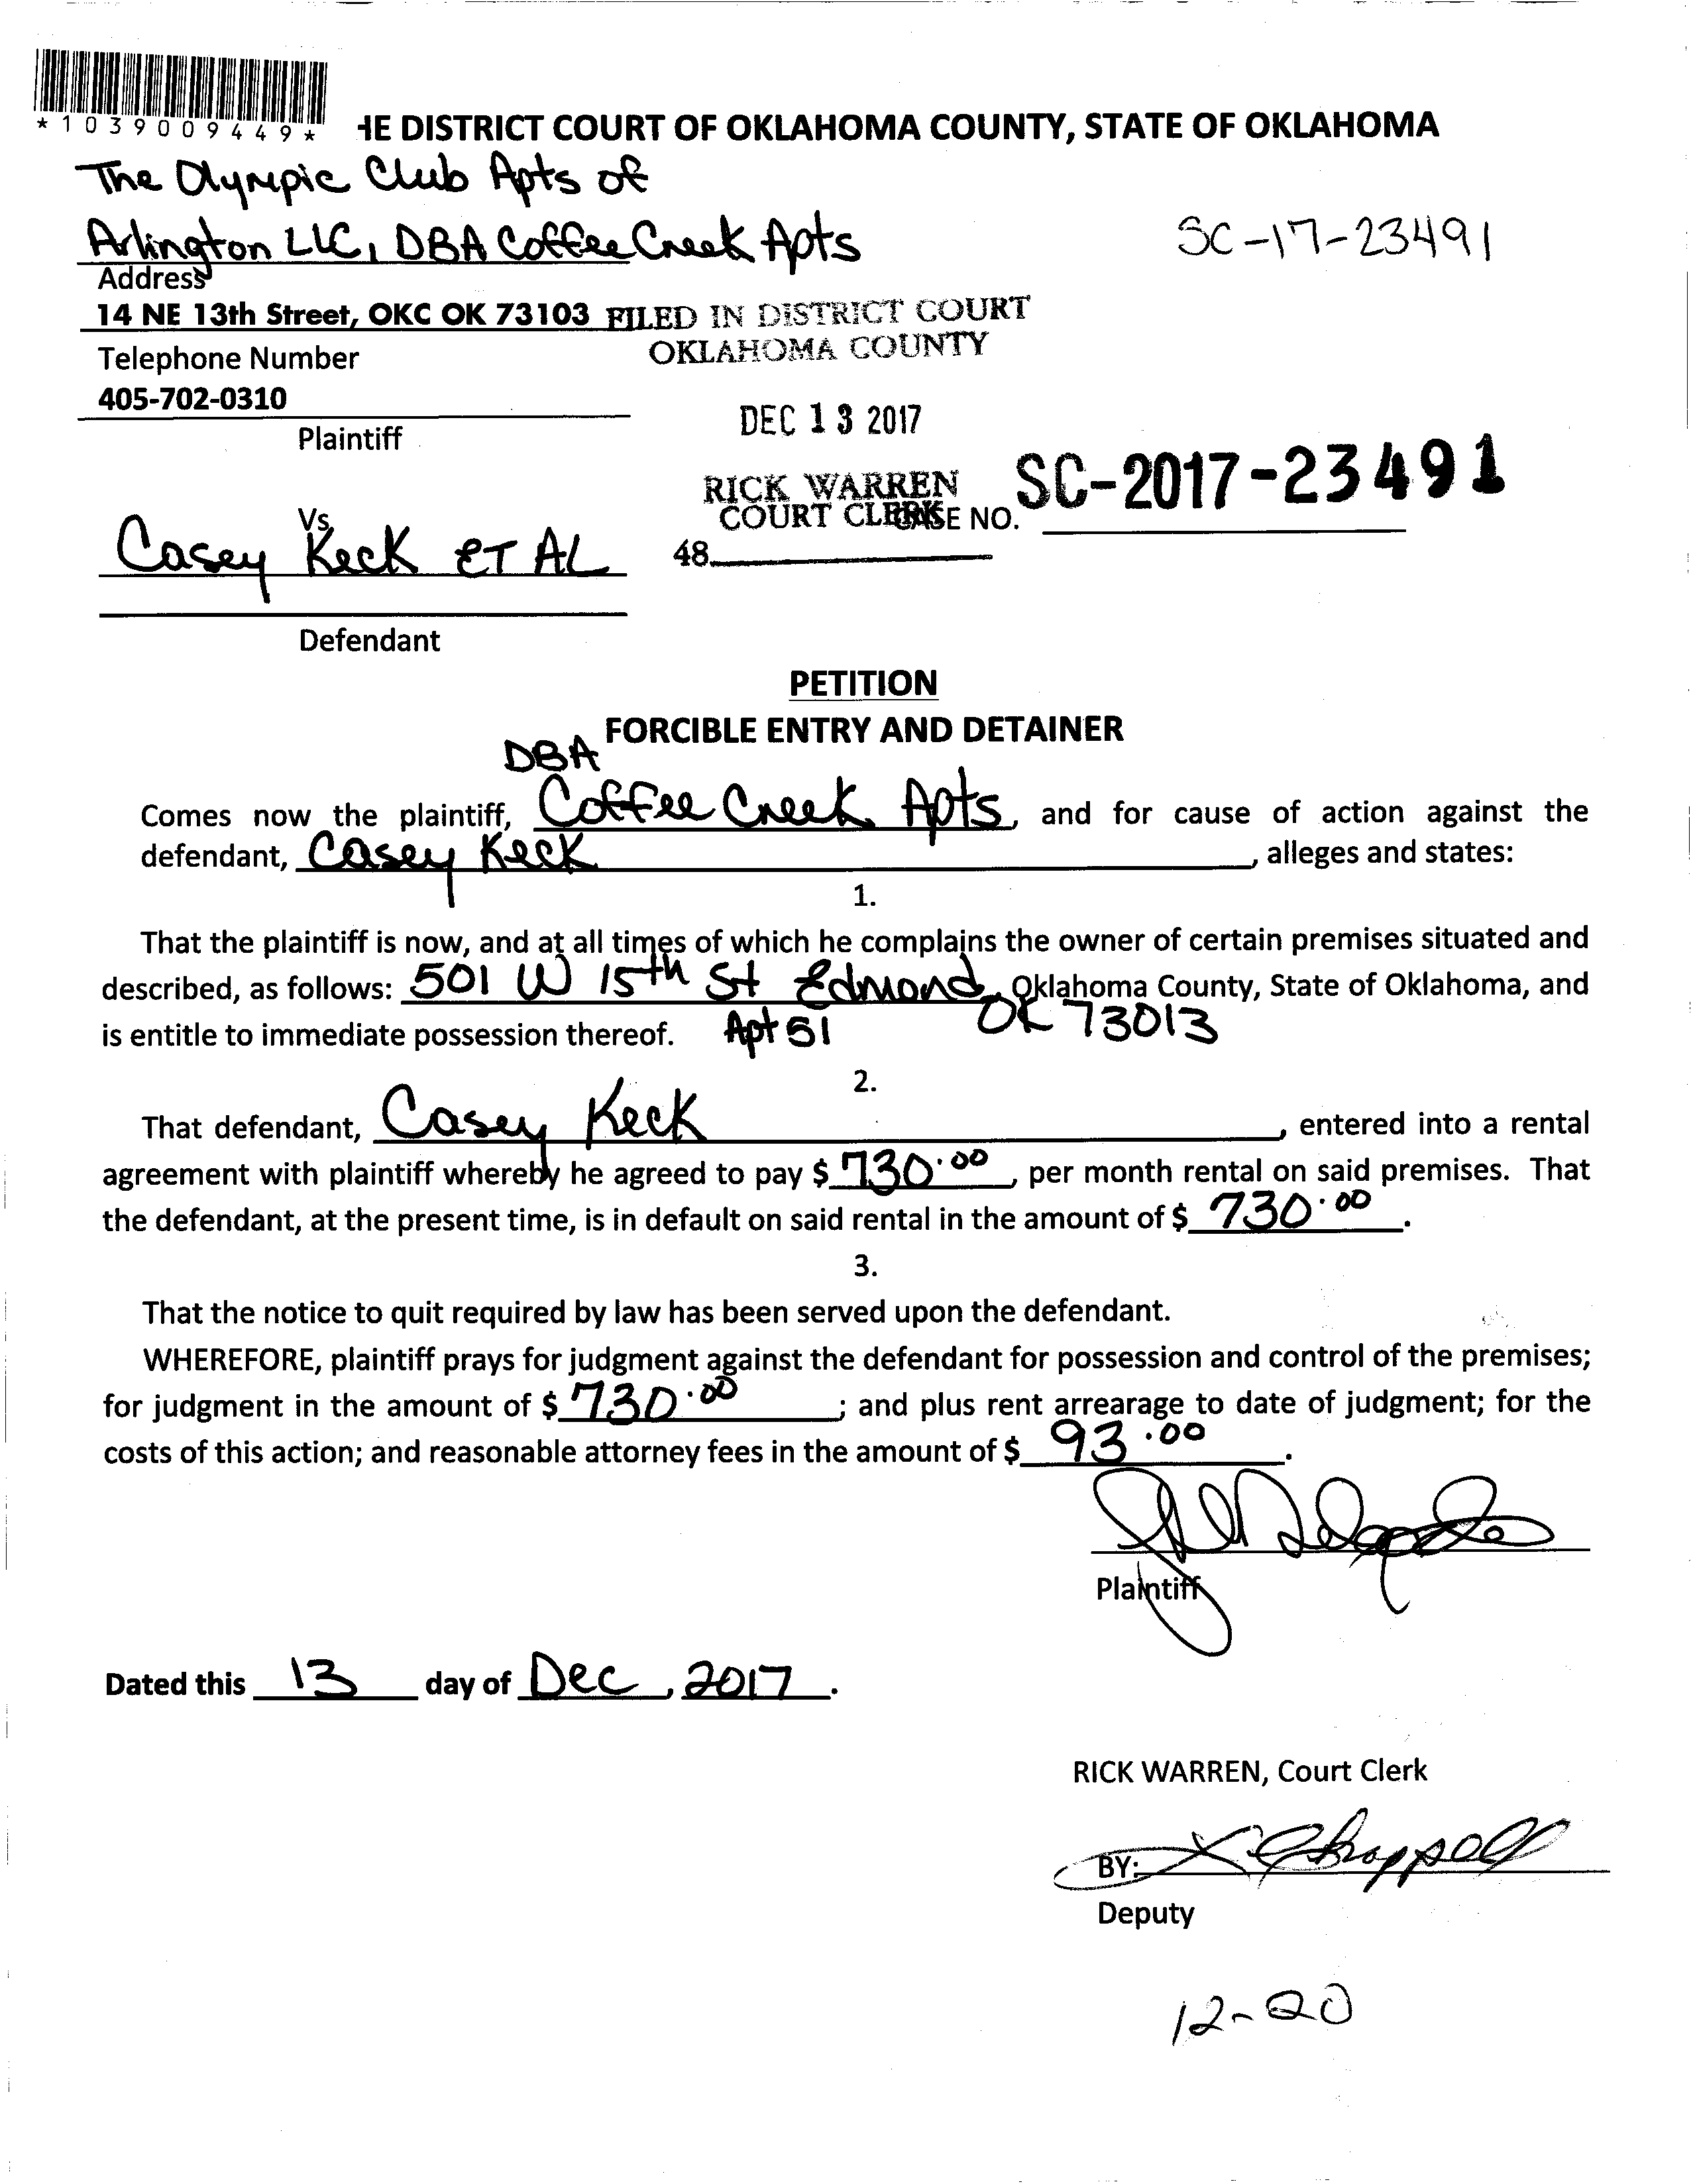 *1039009449*
HE DISTRICT COURT OF OKLAHOMA COUNTY, STATE OF OKLAHOMA
The Olympic Club Apts of
Arlington LLC, DBA Coffee Creek Apts
SC-17-23491
Address
14 NE 13th Street, OKC OK 73103
FILED IN DISTRICT COURT
OKLAHOMA COUNTY
Telephone Number
405-702-0310
Plaintiff
DEC 13 2017
RICK WARREN
COURT CLERK
CASE NO. SC-2017-23491
Vs.
Casey Keck ET AL
48
Defendant
PETITION
FORCIBLE ENTRY AND DETAINER
DBA
Comes now the plaintiff, Coffee Creek Apts, and for cause of action against the
defendant, Casey Keck, alleges and states:
1.
That the plaintiff is now, and at all times of which he complains the owner of certain premises situated and
described, as follows: 501 W 15th St Edmond, Oklahoma County, State of Oklahoma, and
is entitle to immediate possession thereof. Apt 51 OK 73013
2.
That defendant, Casey Keck, entered into a rental
agreement with plaintiff whereby he agreed to pay $ 730.00, per month rental on said premises. That
the defendant, at the present time, is in default on said rental in the amount of $ 730.00.
3.
That the notice to quit required by law has been served upon the defendant.
WHEREFORE, plaintiff prays for judgment against the defendant for possession and control of the premises;
for judgment in the amount of $ 730.00; and plus rent arrearage to date of judgment; for the
costs of this action; and reasonable attorney fees in the amount of $ 93.00.
Plaintiff
Dated this 13 day of Dec, 2017.
RICK WARREN, Court Clerk
BY:
Deputy
12-20